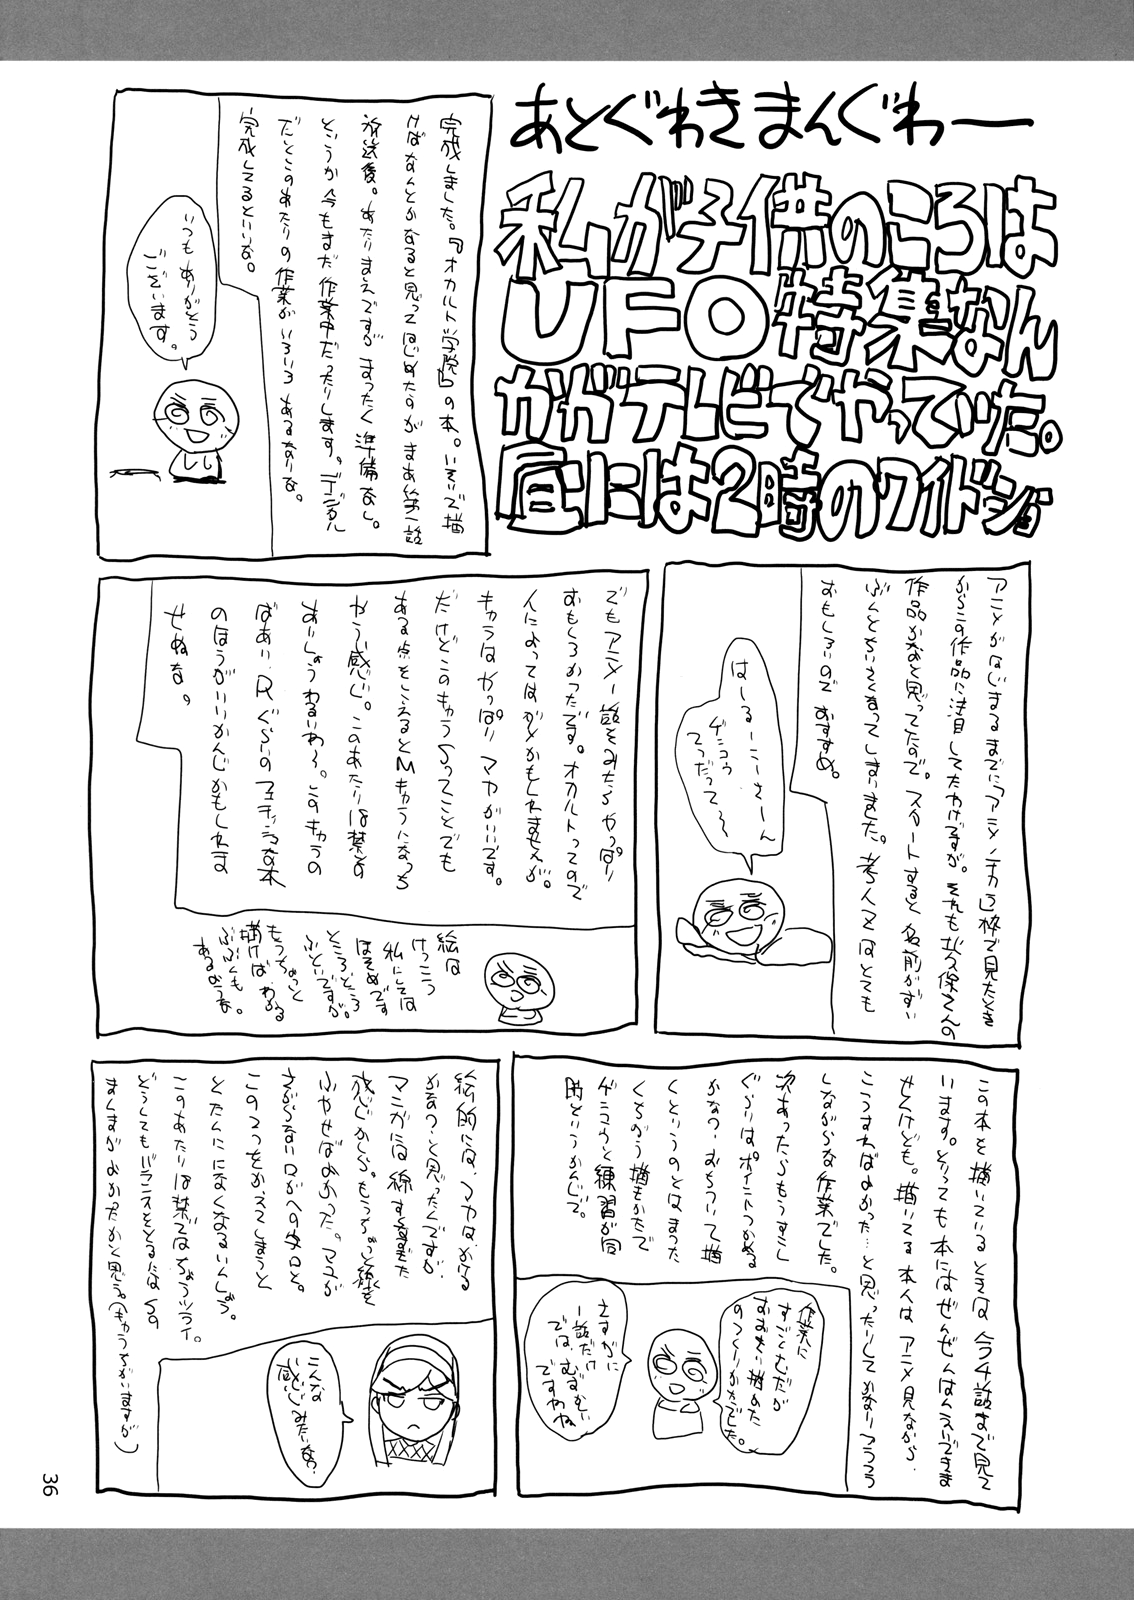 あとぐわきまんぐわー
私が子供のころは
UFO特集なん
かがテレビでやっていた。
昼には2時のワイドショ
完成しました。『オカルト学院』の本。いそいで描
けばなんとかなると思ってはじめたのがまあ第一話
放送後。あたりまえですがまったく準備なし。
というか今もまだ作業中だったりします。デジタル
だとこのあたりの作業がいろいろあるなりな。
完成してるといいな。
いつもありがとう
ございます。
アニメがはじまるまでに「アニメノチカラ」枠で見たとき
からこの作品に注目してたわけですが。それも
作品かなあと思ってたので。スタートすると名前がずい
ぶんとちいさくなってしまいました。
おもしろいのでおすすめ。
はーるーこーさーん
ゲンコウ
てつだって〜
でもアニメ一話をみたらやっぱり
おもしろかったです。オカルトってので
人によってはダメかもしれませんが。
キャラはやっぱりマヤがいいです。
だけどこのキャラSってことでも
ある点をこえるとMキャラになっち
ゃう感じ。このあたりは禁その
あいしょうわるいわ〜。このキャラの
ばあい、Rぐらいのフェチッシュな本
のほうがいいかんじかもしれま
せぬな。
絵は
けっこう
私にしては
ほそめです
ところどころ
ふといですが。
もうちょっと
描けばわかる
ぶぶんも
あるようなぁ。
この本を描いているときは今4話まで見て
います。とっても本にはぜんぜんはんえいできま
せんけども。描いてる本人はアニメ見ながら、
こうすればよかった…と思ったりしてかなりフラフラ
しながらな作業でした。
次あったらもうすこし
ぐらいはポイントつかめる
かなっ・おちついて描
くというのとはまった
くちがう描きかたで
ゲンコウと練習が同
時というかんじで。
作業に
すごくむだが
おおきい描めた
のつくりかたでした。
さすがに
一話だけ
では、むずむずい
ですわね
絵的には、マヤは、かける
かなっ・と思ったんですが
マンガには線すくなすぎた
感じかしら。もうちょっと線を
ふやせばよかった。マユが
さがらない口がへの字口と。
この2つをかえてしまうと
とたんにになくなるいんしょう。
このあたりは禁ではちょうツライ。
どうしてもバランスをとるにはSの
まんまがよかったかと思う。(もうちがいますが)
こんな
感じみたいな?
36